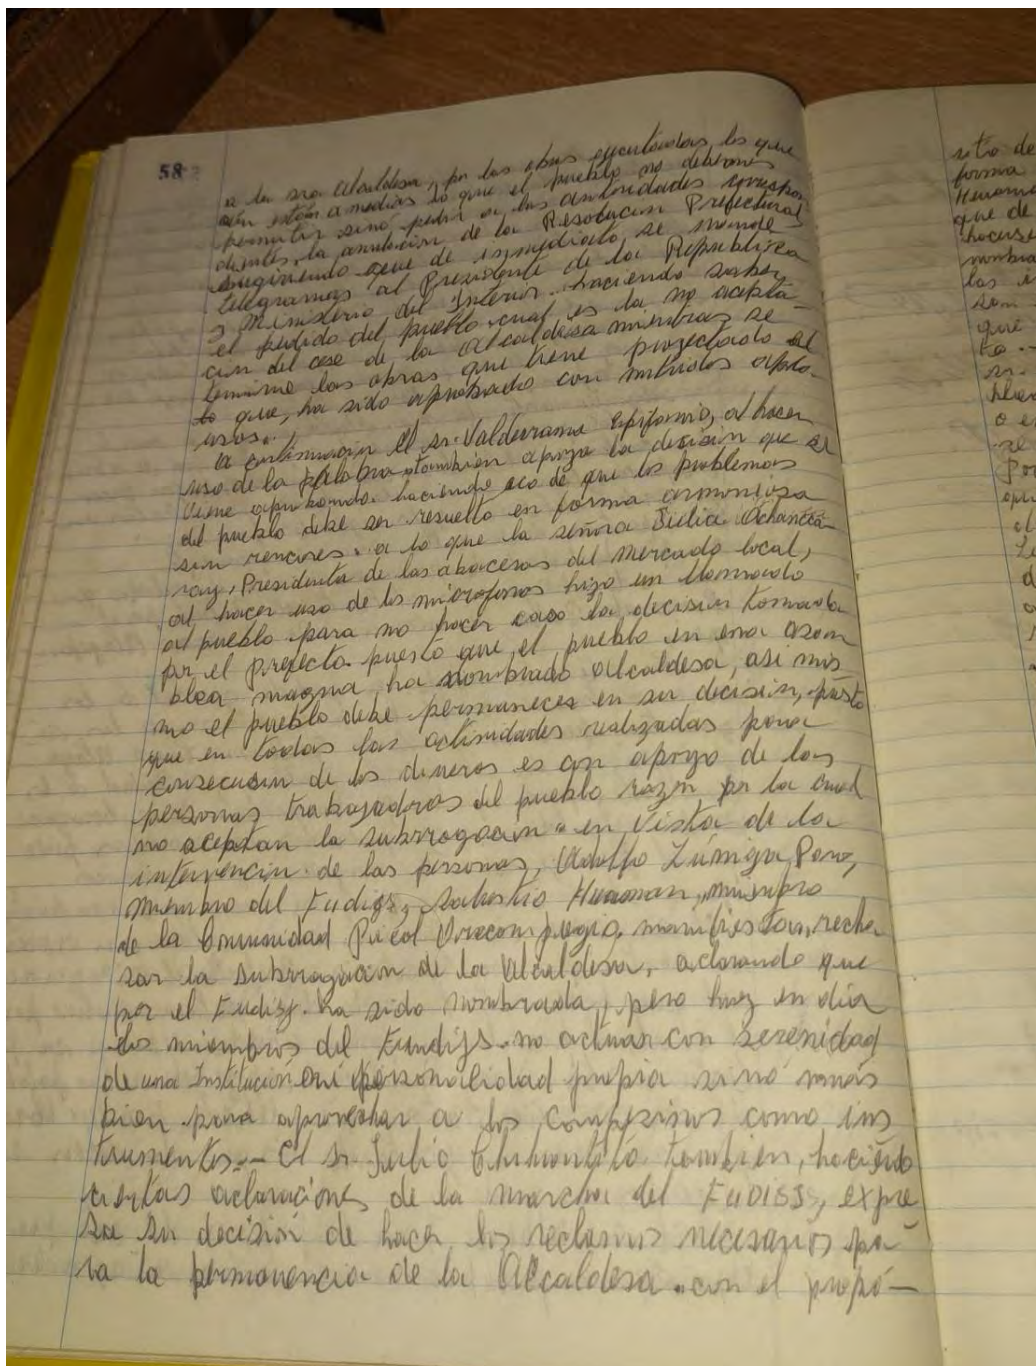 58
a la sra. Alcaldesa, por las obras ejecutadas, los que
aún están a medias lo que el pueblo no debemos
permitir sinó pedir a las autoridades correspon
dientes, la anulación de la Resolución Prefectural
sugiriendo que de inmediato, se mande
telegramas al Presidente de la República
y Ministerio del Interior. haciendo saber,
el pedido del pueblo, cual es la no acepta-
ción del cese de la Alcaldesa mientras se
termine las obras que tiene proyectado el
lo que, ha sido aprobado con nutridos aplau-
usos.
a continuación el sr. Valderrama Epifanio, al hacer
uso de la palabra, tambien apoya la decisión que se
viene aprobando. haciendo eco de que los problemas
del pueblo debe ser resuelto en forma armoniosa
sin rencores. a lo que la señora Julia
ray, Presidenta de las abaceras del mercado local,
al hacer uso de los micrófonos hizo un llamado
al pueblo para no hacer caso la decisión tomada
por el prefecto. puesto que, el pueblo en una asam
blea magna, ha nombrado alcaldesa, asi mis
mo el pueblo debe permanecer en su decisión, puesto
que en todas las actividades realizadas para
consecución de los dineros es con apoyo de las
personas trabajadoras del pueblo razón por la cual
no aceptan la subrrogación " en vista de la
intervención de las personas, Adolfo Zúniga
miembro del Fudigs, Huaman, miembro
de la Comunidad manifiestan, recha
sar la subrragación de la Alcaldesa, aclarando que
por el Fudigs. ha sido nombrada, pero hoy en dia
los miembros del Fundijs. no actuan con serenidad
de una Institución personalidad propia sinó más
bien para aprovechar a los campesinos como ins
trumentos.- El sr. Julio tambien, haciendo
ciertas aclaraciones de la marcha del FUDISS, expre
sa su decisión de hacer los reclamos necesarios pa-
ra la permanencia de la Alcaldesa. con el propó-
sito de
forma
que de
hacerse
nombra
las
son
que